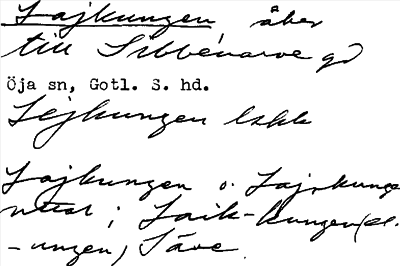 Lajkungen, åker
till Sibbenarve gd
Öja sn, Gotl. S. hd.
Lejkungen lskk
Lajkungen o. Laj-kunge
ntet ; Laik-kungen (el.
-ungen) Säve